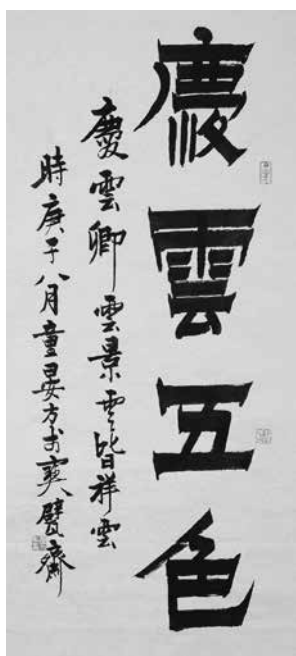 慶雲五色
慶雲卿雲景雲皆祥雲
時庚子八月童晏方於寅璧齋